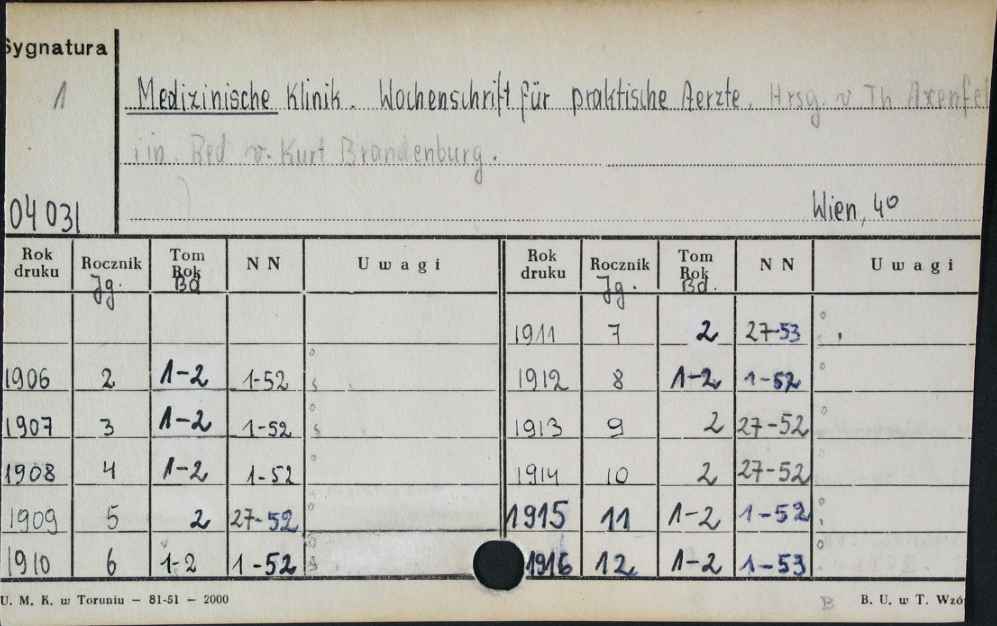 Sygnatura
1
Medizinische Klinik. Wochenschrift für praktische Aerzte. Hrsg. v Th Axenfel
iin. Red v. Kurt Brandenburg.
04 031 Wien, 4°
Rok druku Rocznik Jg. Tom Rok Bd N N Uwagi Rok druku Rocznik Jg. Tom Rok Bd. N N Uwagi
1911 7 2 27-53
1906 2 1-2 1-52 1912 8 1-2 1-52
1907 3 1-2 1-52 1913 9 2 27-52
1908 4 1-2 1-52 1914 10 2 27-52
1909 5 2 27-52 1915 11 1-2 1-52
1910 6 1-2 1-52 1916 12 1-2 1-53
U. M. K. w Toruniu — 81-51 — 2000 B B. U. w T. Wzó